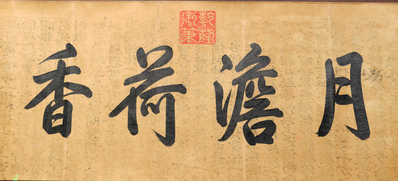 月澹荷香
乾隆御筆